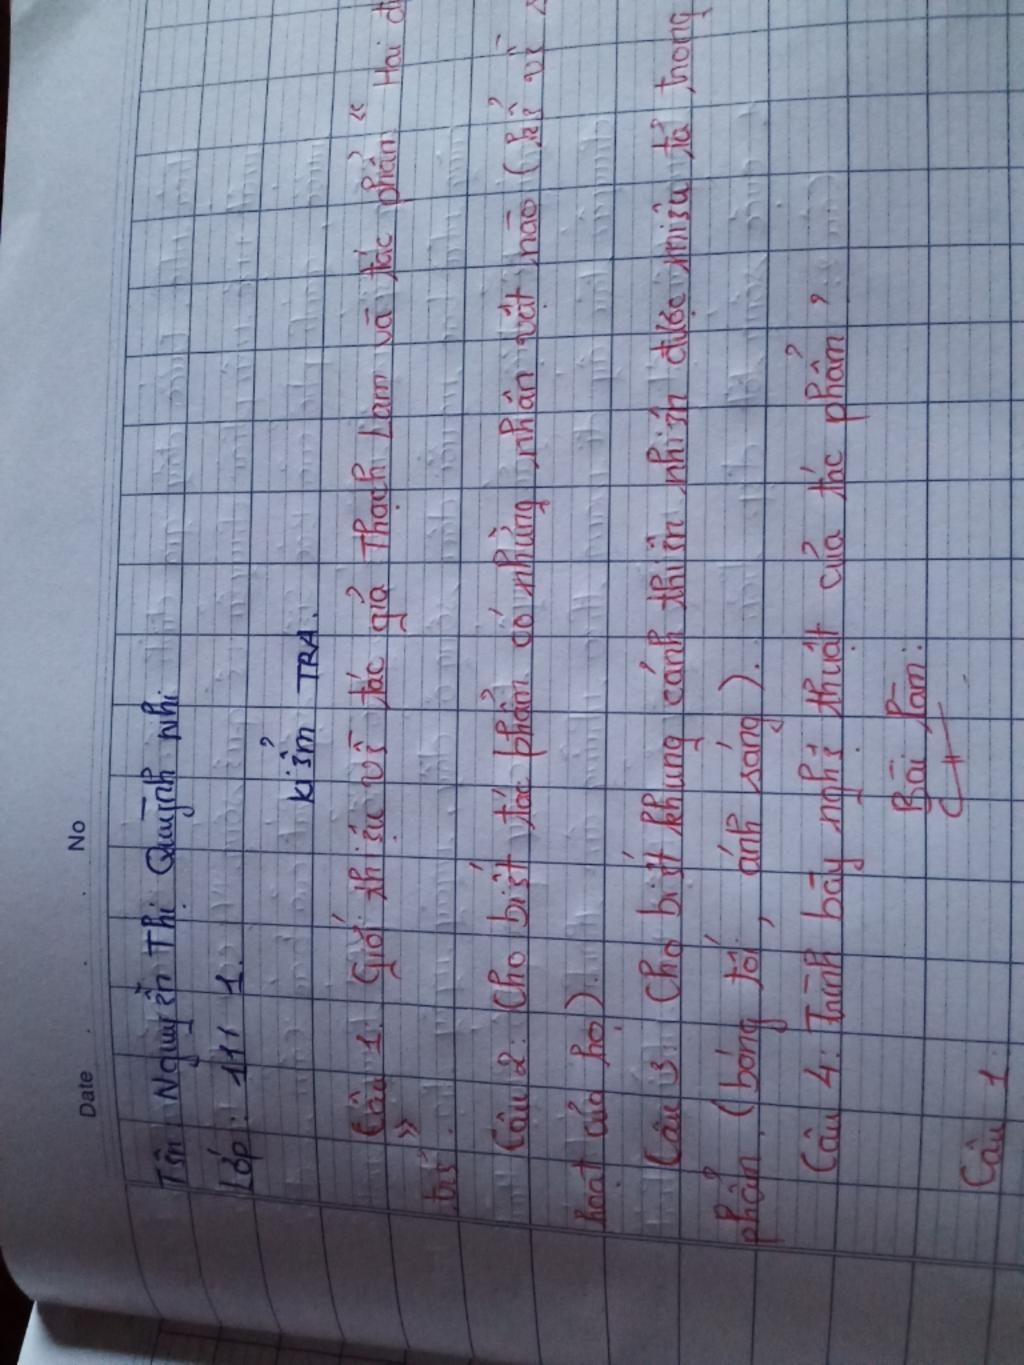 Date No
Tên Nguyễn Thị Quỳnh Nhi
Lớp: 11/1.
KIỂM TRA.
Câu 1: Giới thiệu về tác giả Thạch Lam và tác phẩm " Hai đ
trẻ".
Câu 2: Cho biết tác phẩm có những nhân vật nào (kể về
hoạt của họ).
Câu 3: Cho biết khung cảnh thiên nhiên được miêu tả trong
phẩm. (bóng tối, ánh sáng).
Câu 4: Trình bày nghệ thuật của tác phẩm?
Bài làm:
Câu 1